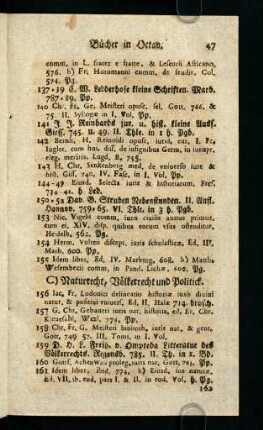 Bücher in Octav. 47
comm. in L. frater e fratre, & Lesenti Africano,
576. b) Fr. Hotomanni comm. de feudis. Col.
574. Pg.
137-39 C. W. Ledderhose kleine Schriften. Marb.
787-89. Pp.
140 Chr. Fr. Ge. Meisteri opusc. sel. Gott. 766. &
75. II. Sylloge in I. Vol. Pp.
141 J. J. Reinhards jur. u. hist. kleine Ausf.
Giess. 745. u. 49. II. Thle. in 1 h. Pgb.
142 Bernh. H. Reinold opusc. jurid. cur. I. Fr.
Iugler, cum hui. diss. de insignibus Germ. in iureiur.
eleg. meritis. Lugd. B. 745.
143 H. Chr. Senkenberg med. de universo iure &
hist. Giss. 740. IV. Fasc. in I. Vol. Pp.
144-49 Eiusd. Selecta iuris & historiarum. Fref.
734-42. h Led.
150-52 Dav. G. Struben Nebenstunden. II. Aufl.
Hannov. 759-65. VI. Thle. in 3 h. Pgb.
153 Nic. Vigelii comm. iuris civilis annus primus,
cum ei. XIV. disp. quibus eorum usus ostenditur.
Heidelb. 562. Pg.
154 Herm. Vulteii discept. iuris scholasticae. Ed. III.
Marb. 600. Pp.
155 Idem liber, Ed. IV. Marburg. 608. b) Matth.
Wesembecii comm. in Pand. Lichae, 608. Pg.
C) Naturrecht, Völkerrecht und Politick.
156 Iac. Fr. Ludovici delineatio historiae iuris divini
natur. & positivi univers. Ed. II. Hale 714 brosch.
157 G. Chr. Gebaueri iuris nat. historia, ed. Er. Chr.
Wezl. 774. Pp.
158 Chr. Fr. G. Meisteri biblioth. iuris nat. & gent.
Gott. 749 57. III. Tomi. in I. Vol.
159 D. H. L. Freih. v. Ompteda Litteratur des
Völkerrechts. Regensb. 785. II. Th. in 1. Bd.
160 Gottf. Achenwall proleg. iuris nat. Gott. 774. Pp.
161 Idem liber, ibid. 774. b) Eiusd. ius naturae,
Ed. VII. ib. eod. pars I. & II. in eod. Vol. h. Pg.
162